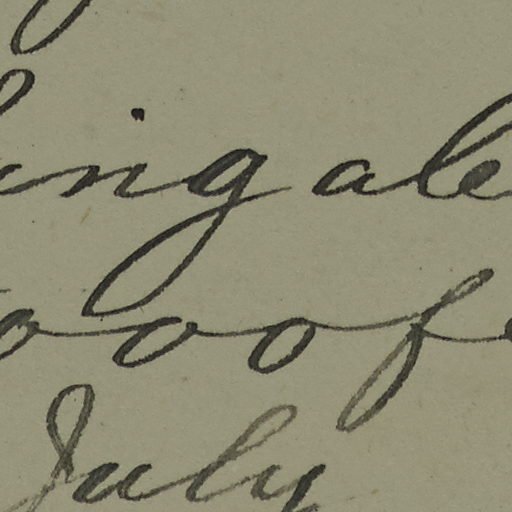 ing ale
ooof
July